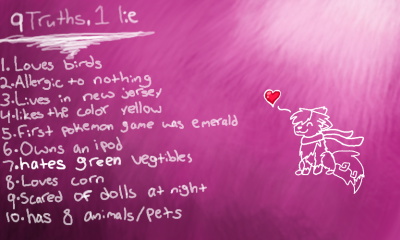 9 Truths, 1 lie
1. Loves birds
2. Allergic to nothing
3. Lives in new jersey
4. likes the color yellow
5. First pokemon game was emerald
6. Owns an ipod
7. hates green vegtibles
8. Loves corn
9. Scared of dolls at night
10. has 8 animals/pets